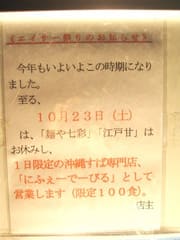 《エイサー祭りのお知らせ》
今年もいよいよこの時期になり
ました。
至る、
10月23日(土)
は、「麺や七彩」「江戸甘」は
お休みし、
1日限定の沖縄すば専門店、
「にふぇーでーびる」として
営業します(限定100食)。
店主